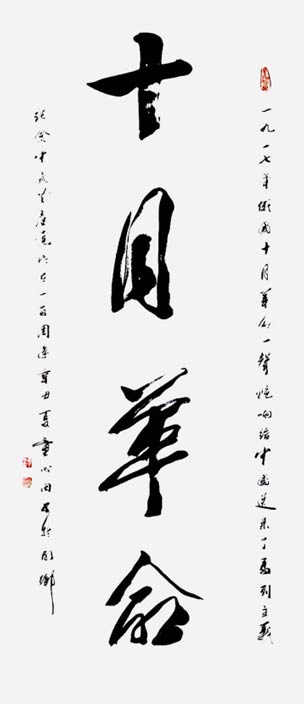 一九一七年俄國十月革命一聲炮响給中國送来了馬列主義
十月革命
纪念中國共産党成立一百周年辛丑夏